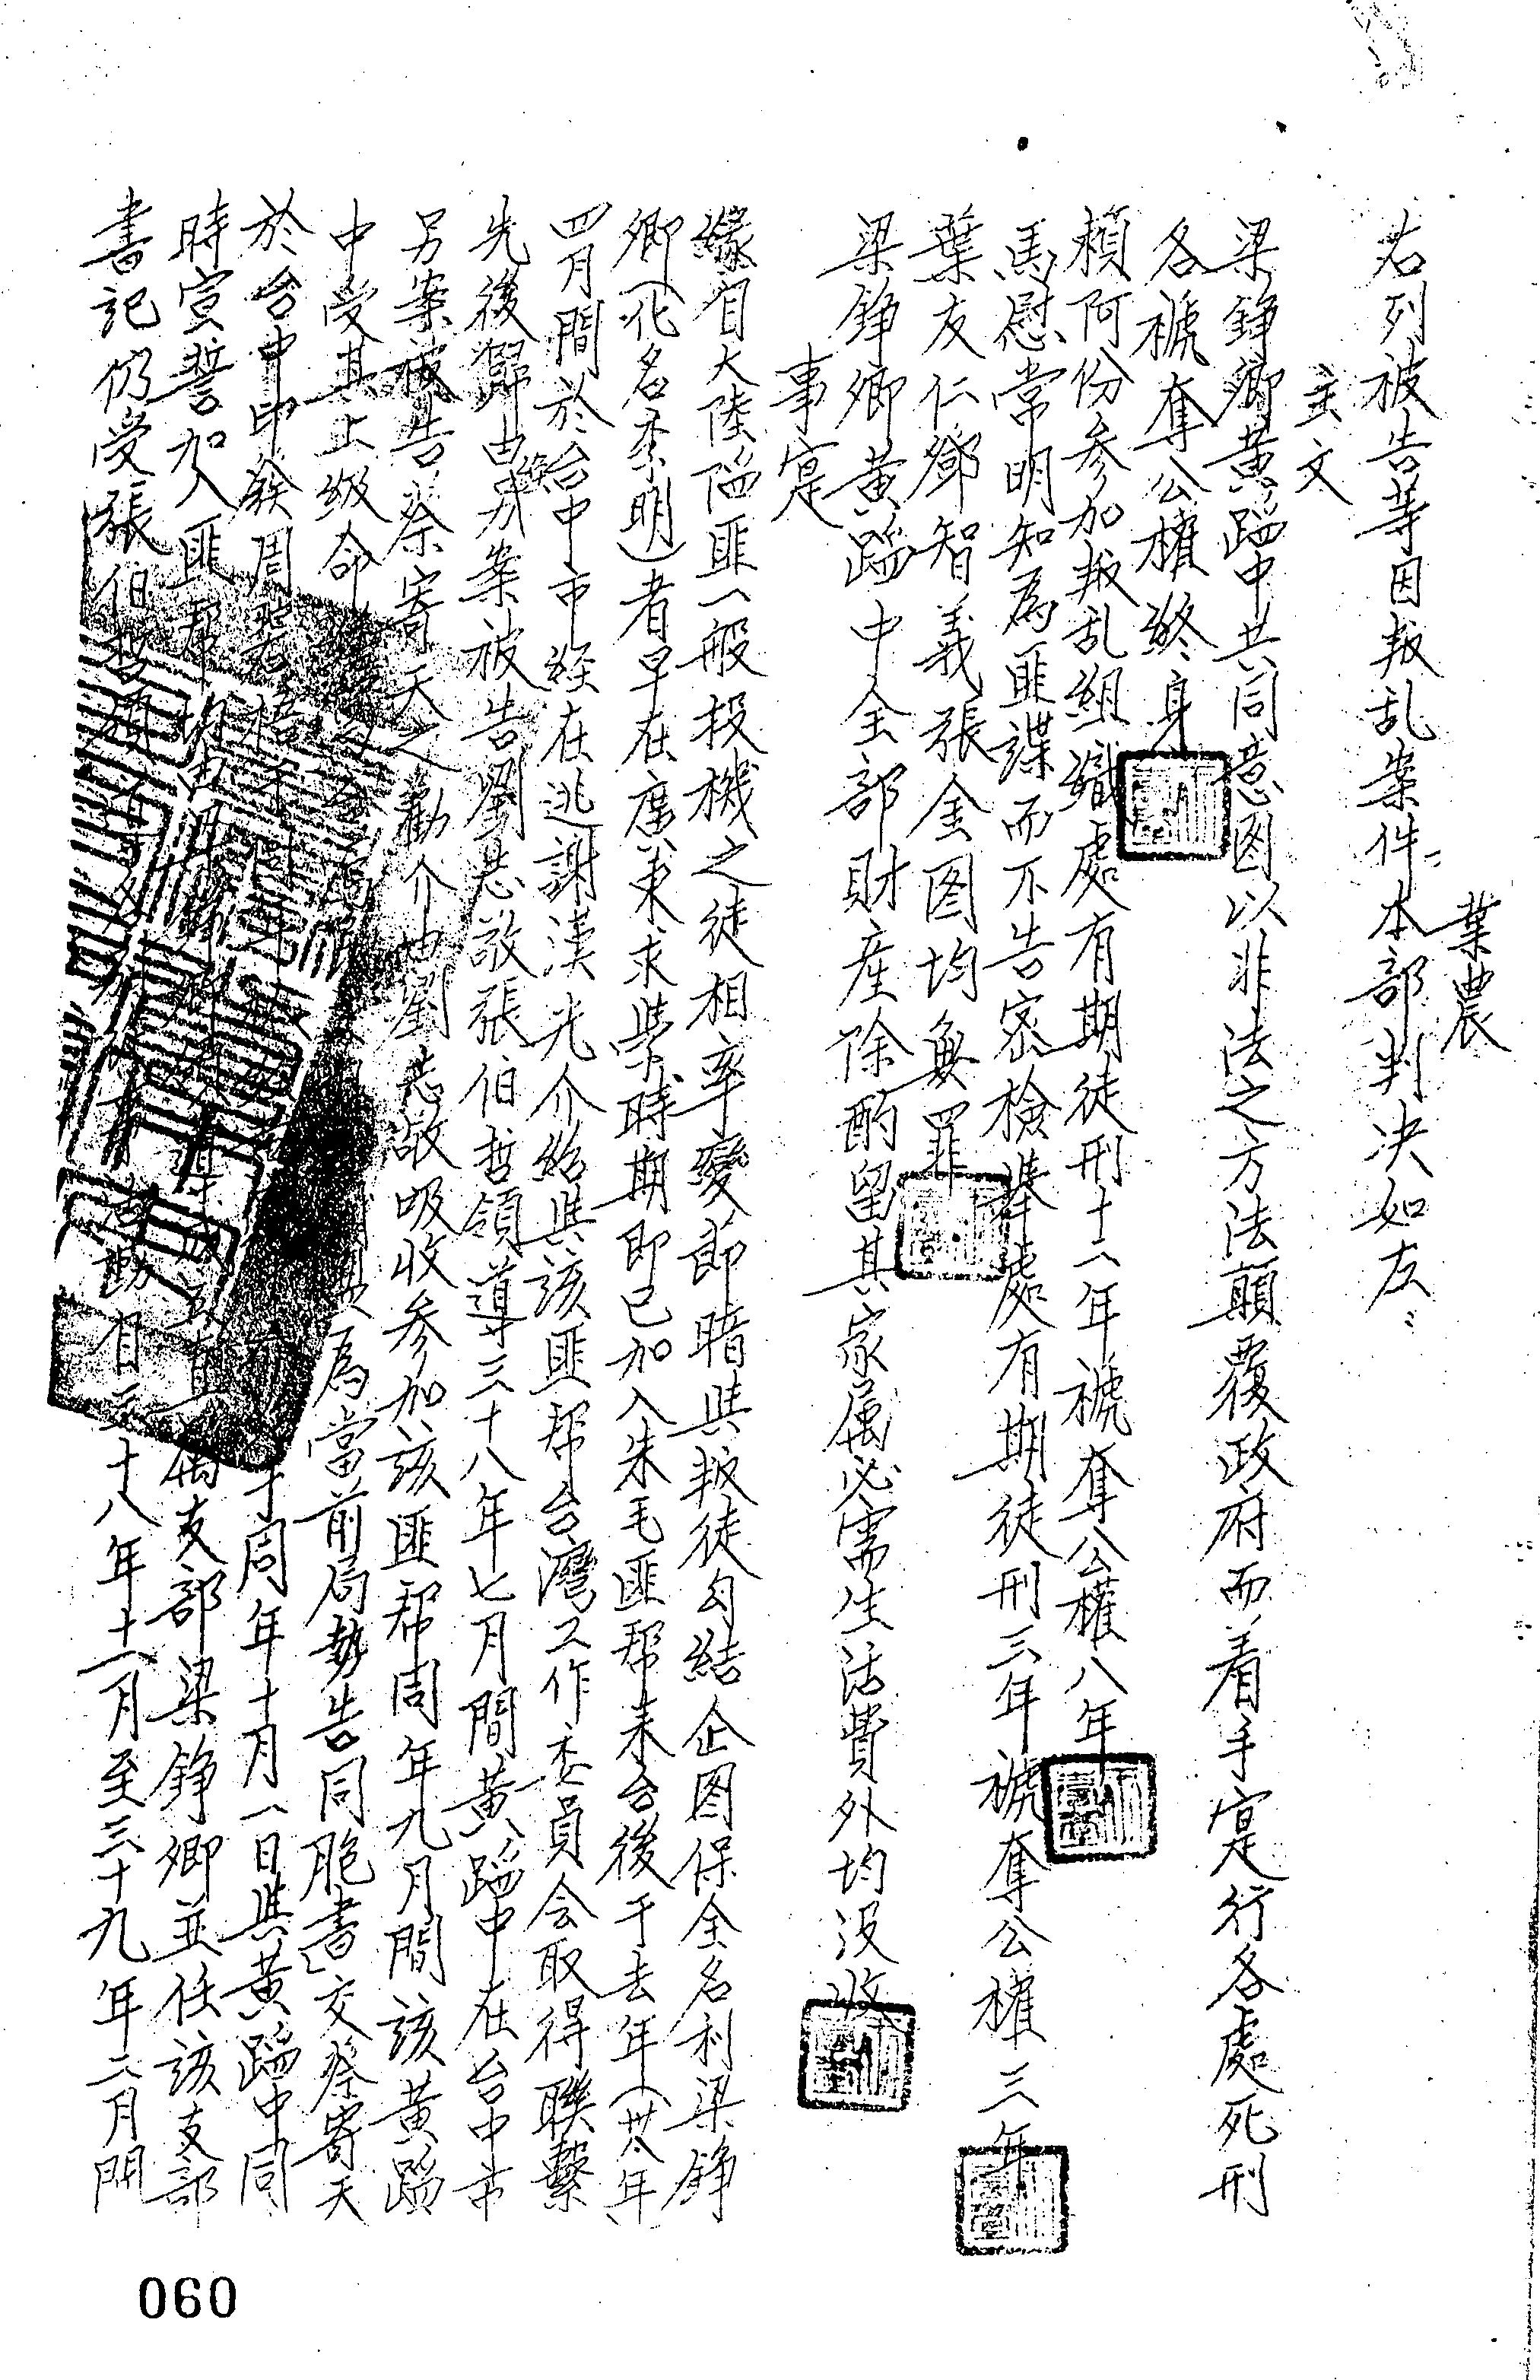 業農
右列被告等因叛乱案件本部判决如左:
主文
梁錚卿黃蹈中共同意图以非法之方法顛覆政府而着手实行各處死刑
各褫奪公權終身
賴阿份参加叛乱組織處有期徒刑十八年褫奪公權八年
馬慰常明知為匪諜而不告密檢舉處有期徒刑三年褫奪公權三年
葉友仁鄧智義張金图均無罪
梁錚卿黃蹈中全部財產除酌留其家属必需生活費外均没收
事寔
緣自大陸陷匪一般投機之徒相率變節暗與叛徒勾結企图保全名利梁錚
卿(化名李明)者早在廣東求學時期即已加入朱毛匪帮来台後于去年(卅八年)
四月間於台中市経在逃謝漢光介紹與該匪帮台灣工作委員会取得聯繫
先後歸由另案被告劉志敬張伯哲領導三十八年七月間黃蹈中在台中市
另案被告蔡寄天之勸介由劉志敬吸收参加該匪帮同年九月間該黃蹈
中受其上級命 為當前局勢告同胞書」交蔡寄天
於台中印發周 同年十月一日與黃蹈中同
時宣誓加入匪帮均由 支部梁錚卿並任該支部
書記仍受張伯哲領導 活動自三十八年十一月至三十九年二月間
060